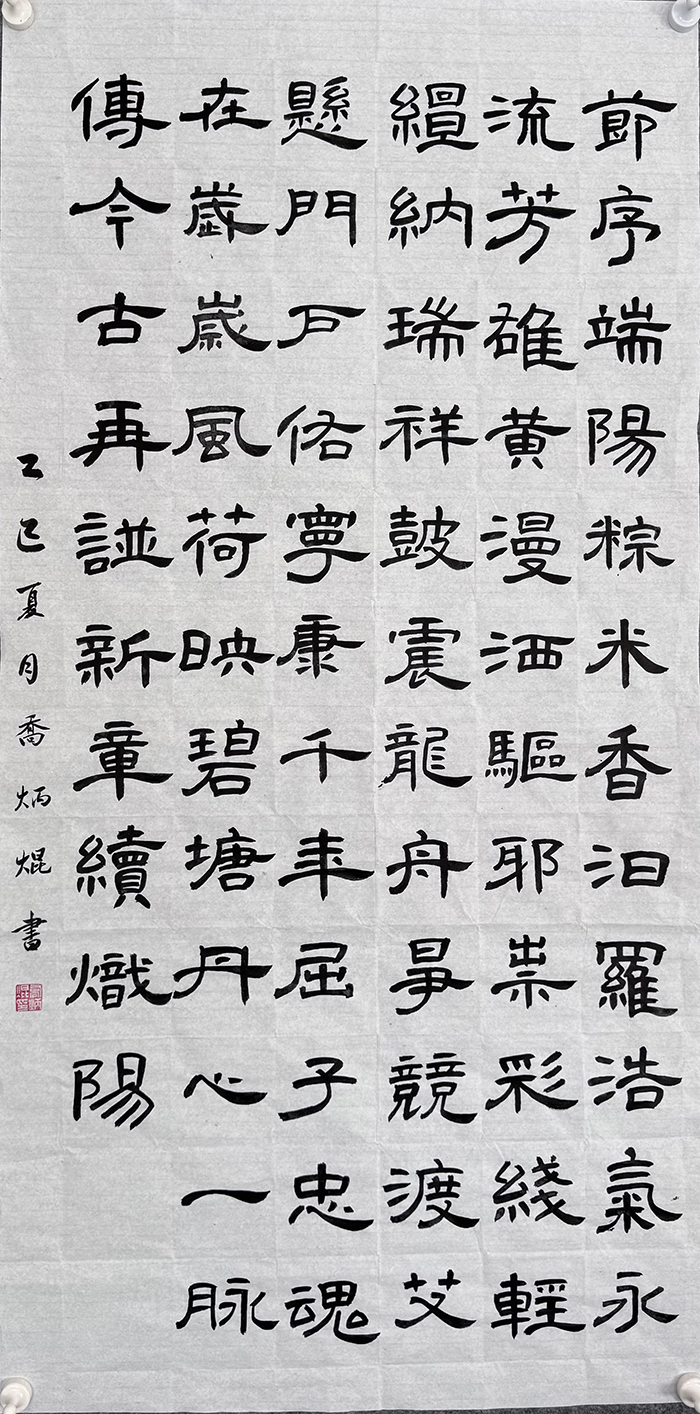 節序端陽粽米香汨羅浩氣永
流芳雄黃漫洒驅耶祟彩綫輕
纏納瑞祥鼓震龍舟爭競渡艾
懸門戶俗寧康千年屈子忠魂
在歲歲風荷映碧塘丹心一脉
傳今古再譜新章續熾陽
乙巳夏月喬炳焜書